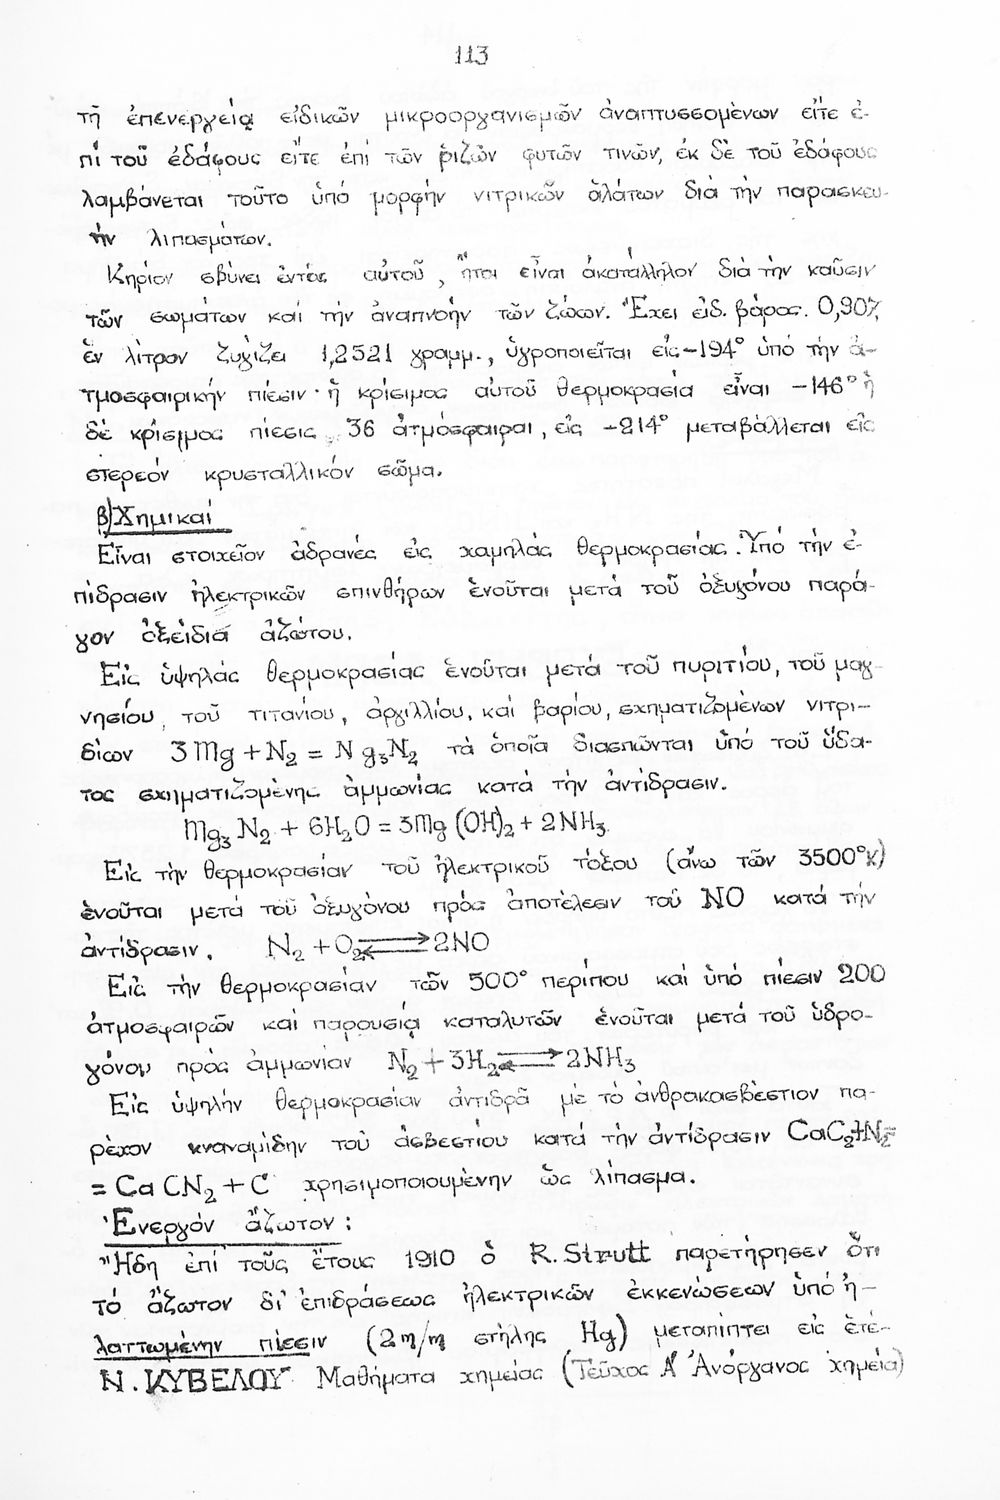 113
τῇ ἐπενεργείᾳ εἰδικῶν μικροοργανισμῶν ἀναπτυσσομένων εἴτε ἐ-
πί τοῦ ἐδάφους εἴτε ἐπί τῶν ῥιζῶν φυτῶν τινῶν, ἐκ δέ τοῦ ἐδάφους
λαμβάνεται τοῦτο ὑπό μορφήν νιτρικῶν ἁλάτων διά τήν παρασκευ-
ήν λιπασμάτων.
Κηρίον σβύνει ἐντός αὐτοῦ, ἤτοι εἶναι ἀκατάλληλον διά τήν καῦσιν
τῶν σωμάτων καί τήν ἀναπνοήν τῶν ζώων. Ἔχει εἰδ. βάρος. 0,907,
ἕν λίτρον ζυγίζει 1,2521 γραμμ., ὑγροποιεῖται εἰς -194° ὑπό τήν ἀ-
τμοσφαιρικήν πίεσιν· ἡ κρίσιμος αὐτοῦ θερμοκρασία εἶναι -146° ἡ
δέ κρίσιμος πίεσις 36 ἀτμόσφαιραι, εἰς -214° μεταβάλλεται εἰς
στερεόν κρυσταλλικόν σῶμα.
β) Χημικαί
Εἶναι στοιχεῖον ἀδρανές εἰς χαμηλάς θερμοκρασίας. Ὑπό τήν ἐ-
πίδρασιν ἠλεκτρικῶν σπινθήρων ἑνοῦται μετά τοῦ ὀξυγόνου παρά-
γον ὀξείδια ἀζώτου.
Εἰς ὑψηλάς θερμοκρασίας ἑνοῦται μετά τοῦ πυριτίου, τοῦ μαγ-
νησίου, τοῦ τιτανίου, ἀργιλλίου, καί βαρίου, σχηματιζομένων νιτρι-
δίων 3Mg + N₂ = N g₃N₂ τά ὁποῖα διασπῶνται ὑπό τοῦ ὕδα-
τος σχηματιζομένης ἀμμωνίας κατά τήν ἀντίδρασιν.
Mg₃ N₂ + 6H₂O = 3Mg (OH)₂ + 2NH₃.
Εἰς τήν θερμοκρασίαν τοῦ ἠλεκτρικοῦ τόξου (ἄνω τῶν 3500°K)
ἑνοῦται μετά τοῦ ὀξυγόνου πρός ἀποτέλεσιν τοῦ NO κατά τήν
ἀντίδρασιν. N₂ + O₂ ⇄ 2NO
Εἰς τήν θερμοκρασίαν τῶν 500° περίπου καί ὑπό πίεσιν 200
ἀτμοσφαιρῶν καί παρουσίᾳ καταλυτῶν ἑνοῦται μετά τοῦ ὑδρο-
γόνου πρός ἀμμωνίαν N₂ + 3H₂ ⇄ 2NH₃
Εἰς ὑψηλήν θερμοκρασίαν ἀντιδρᾶ μέ τό ἀνθρακασβέστιον πα-
ρέχον κυαναμίδην τοῦ ἀσβεστίου κατά τήν ἀντίδρασιν CaC₂+N₂=
= Ca CN₂ + C χρησιμοποιουμένην ὡς λίπασμα.
Ἐνεργόν ἄζωτον:
Ἤδη ἐπί τοῦς ἔτους 1910 ὁ R. Strutt παρετήρησεν ὅτι
τό ἄζωτον δι' ἐπιδράσεως ἠλεκτρικῶν ἐκκενώσεων ὑπό ἠ-
λαττωμένην πίεσιν (2 m/m στήλης Hg) μεταπίπτει εἰς ἑτέ-
Ν. ΚΥΒΕΛΟΥ Μαθήματα χημείας (Τεῦχος Α' Ἀνόργανος χημεία)